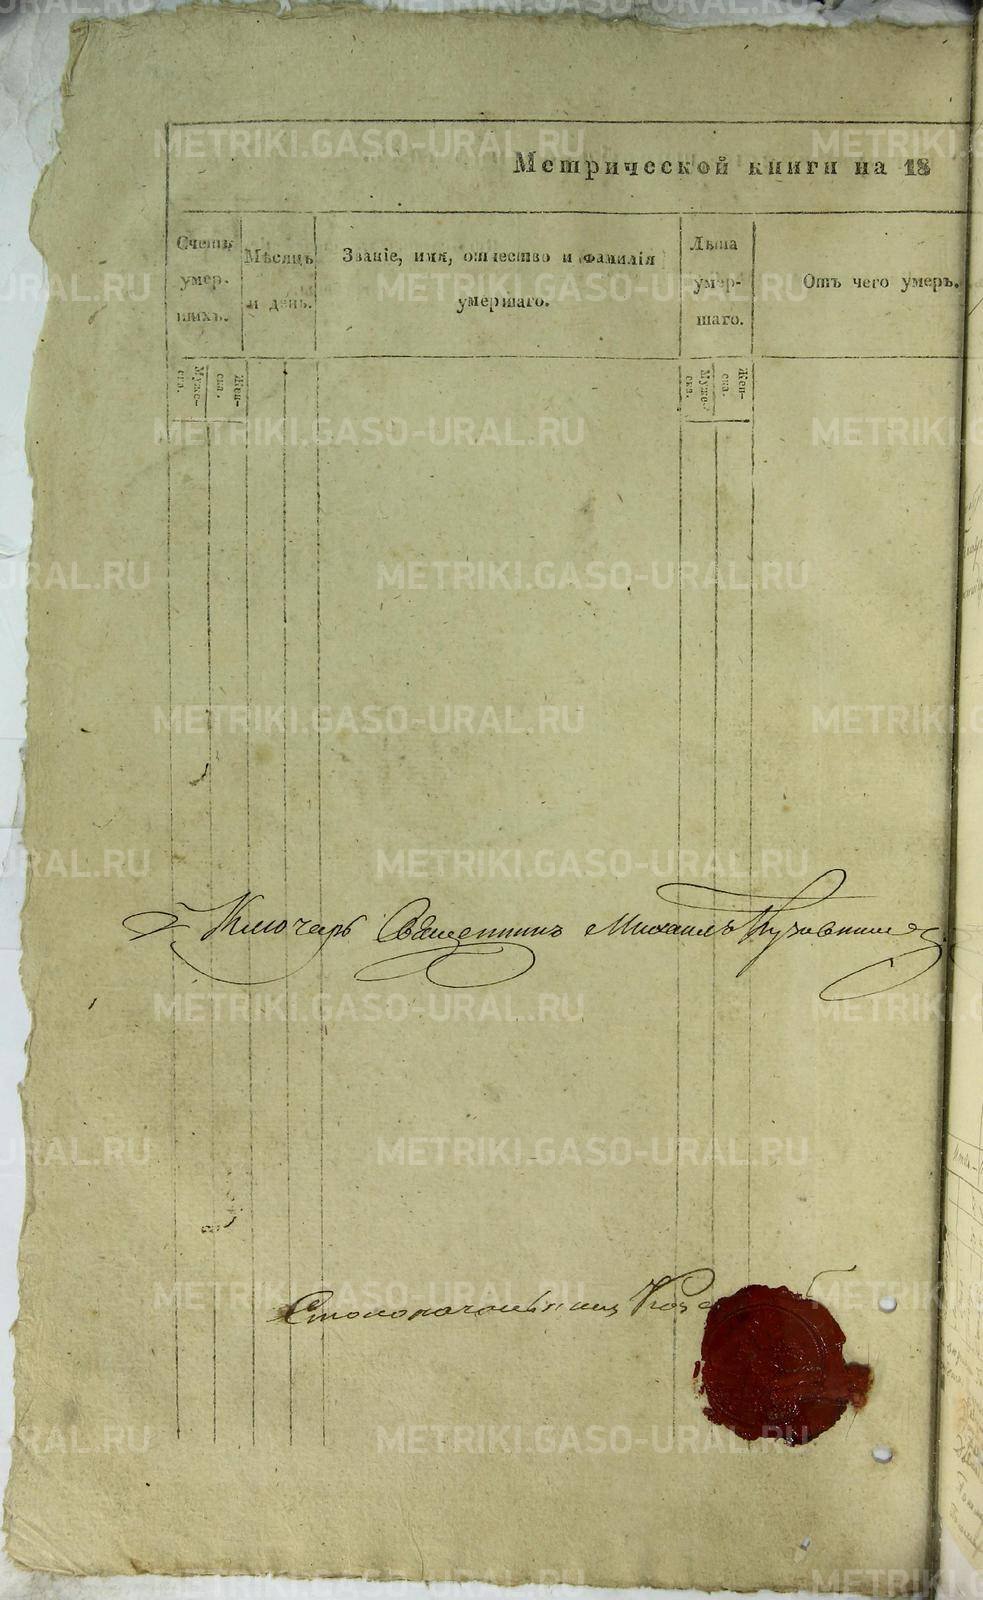 Метрической книги на 18
Счетъ умер- шихъ.
Мѣсяцъ и день.
Званіе, имя, отчество и фамилія умершаго.
Лѣта умер- шаго.
Отъ чего умеръ.
Мужес- ка.
Жен- ска.
Муже- ска.
Жен- ска.
Ключарь Священникъ Михаилъ
Столоначальникъ
METRIKI.GASO-URAL.RU